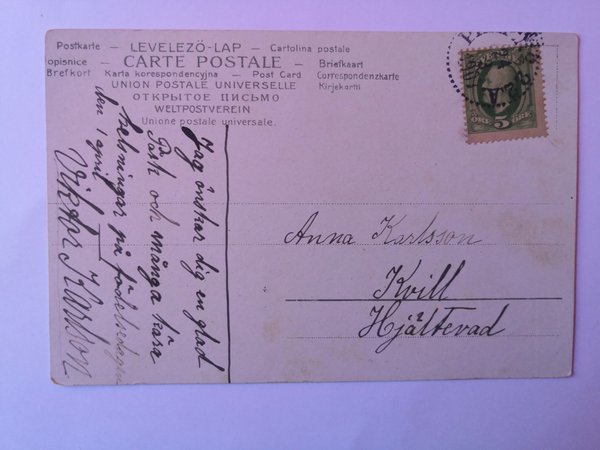 Postkarte — LEVELEZŐ-LAP — Cartolina postale
opisnice — CARTE POSTALE — Briefkaart
Brefkort Karta korespondencyjna — Post Card Correspondenzkarte
UNION POSTALE UNIVERSELLE Kirjekortti
ОТКРЫТОЕ ПИСЬМО
WELTPOSTVEREIN
Unione postale universale.
Jag önskar dig en glad
Påsk och många kära
helsningar på födelsedagen
den 1 april
Viktor Karlson
Anna Karlsson
Kvill
Hjältevad
ÖRE 5 ÖRE